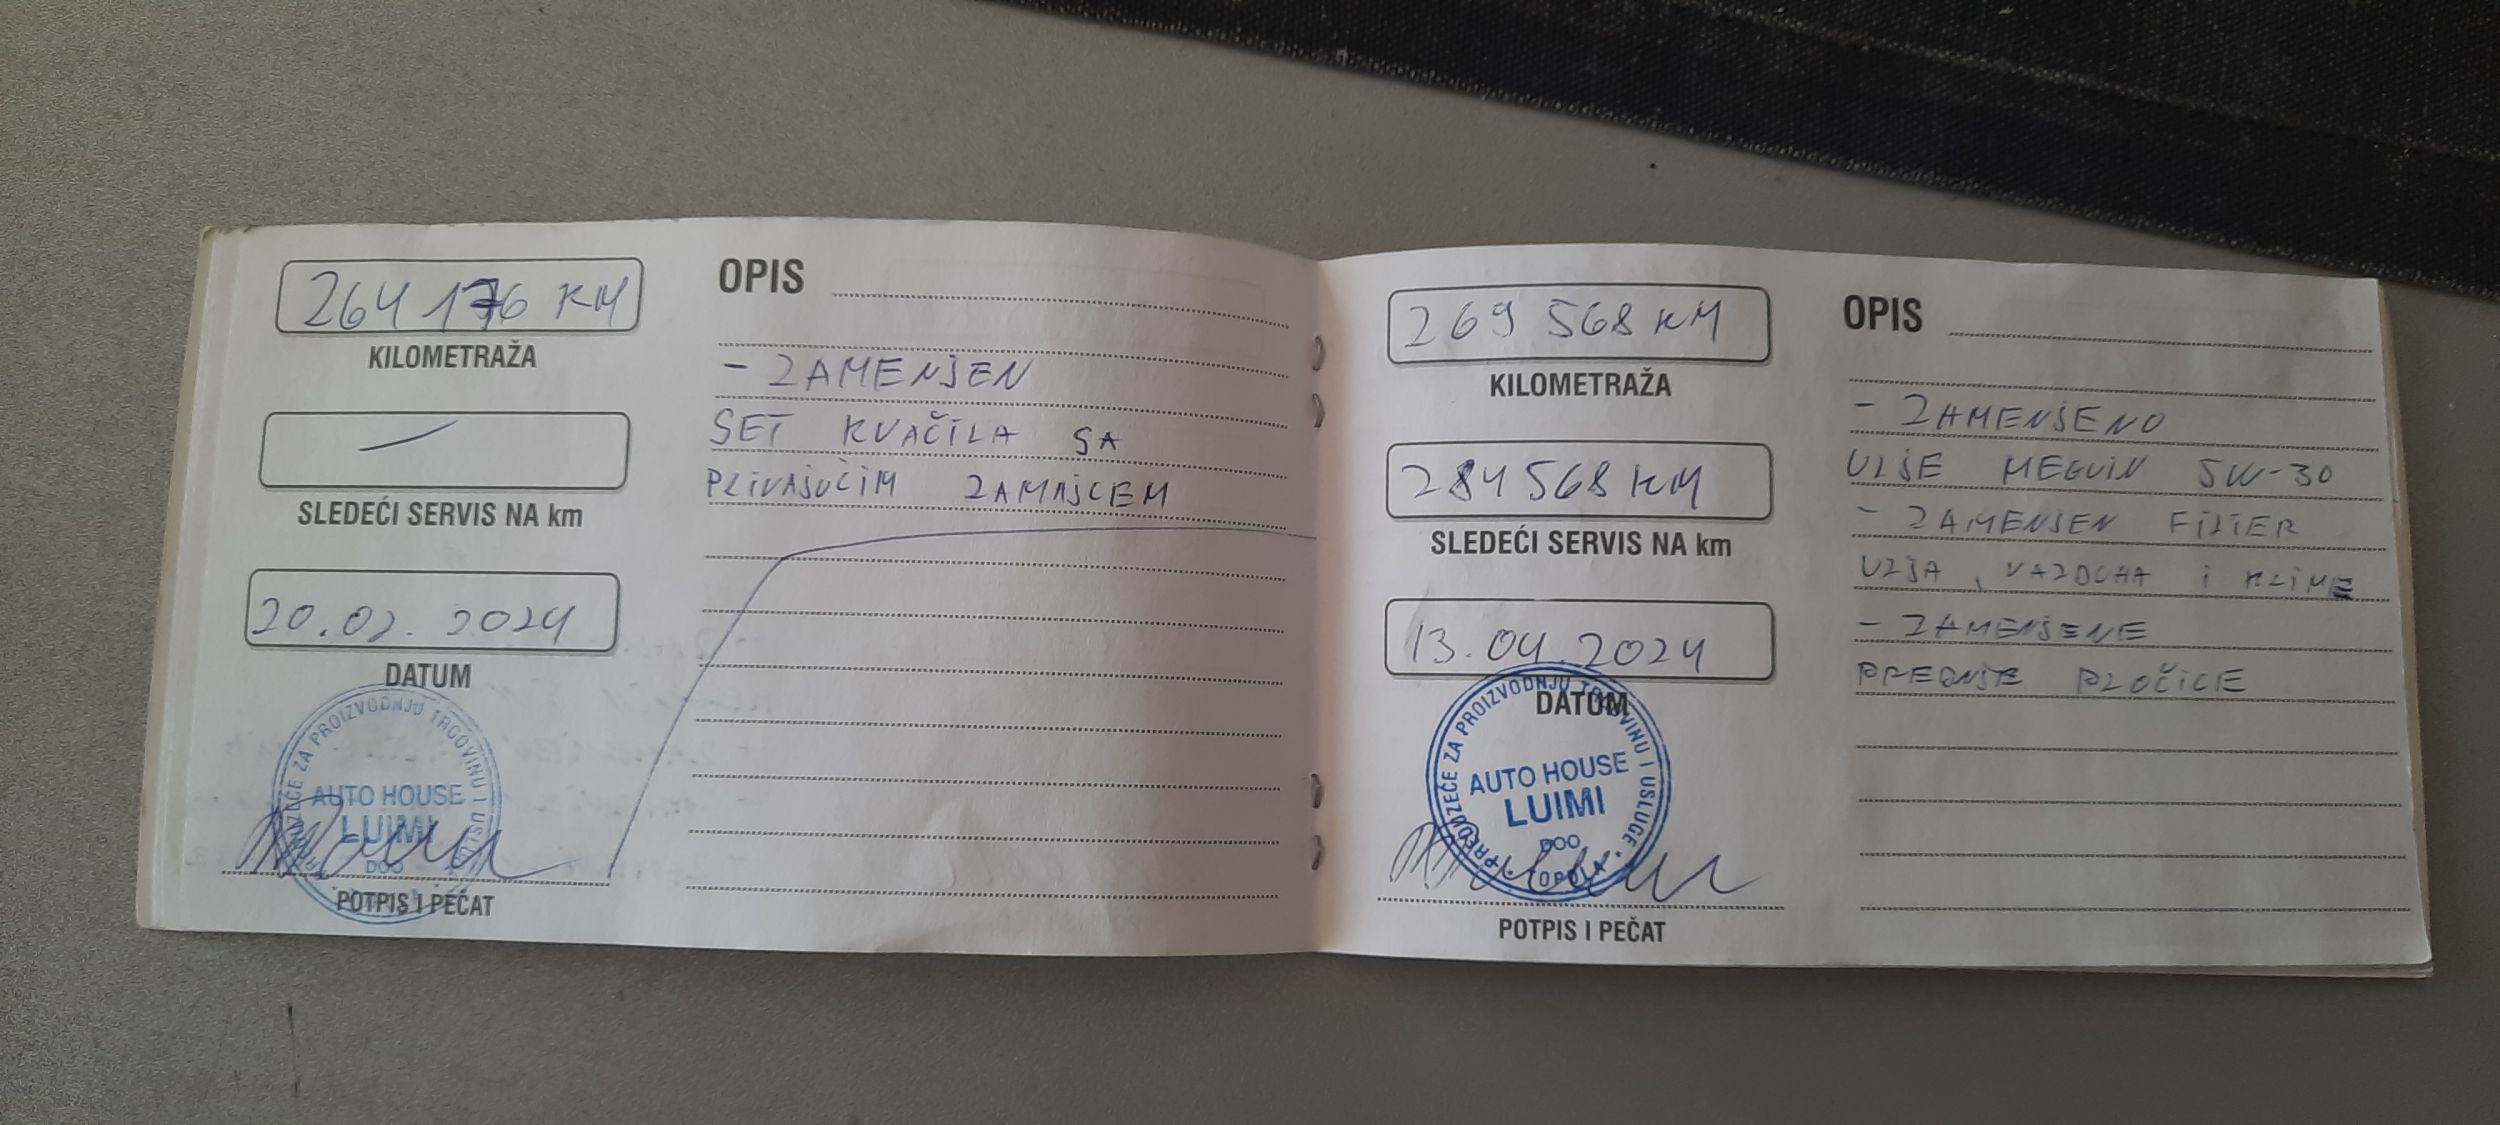 264 176 KM
KILOMETRAŽA
SLEDEĆI SERVIS NA km
20.02.2024
DATUM
PREDUZEĆE ZA PROIZVODNJU TRGOVINU I USLUGE
AUTO HOUSE
LUIMI
DOO
POTPIS I PEČAT
OPIS
- ZAMENJEN
SET KVAČILA SA
PLIVAJUĆIM ZAMAJCEM
269 568 KM
KILOMETRAŽA
284 568 KM
SLEDEĆI SERVIS NA km
13.04.2024
DATUM
PREDUZEĆE ZA PROIZVODNJU TRGOVINU I USLUGE
AUTO HOUSE
LUIMI
DOO
TOPOLA
POTPIS I PEČAT
OPIS
- ZAMENJENO
ULJE MEGUIN 5W-30
- ZAMENJEN FILTER
ULJA, VAZDUHA I KLIME
- ZAMENJENE
PREDNJE PLOČICE